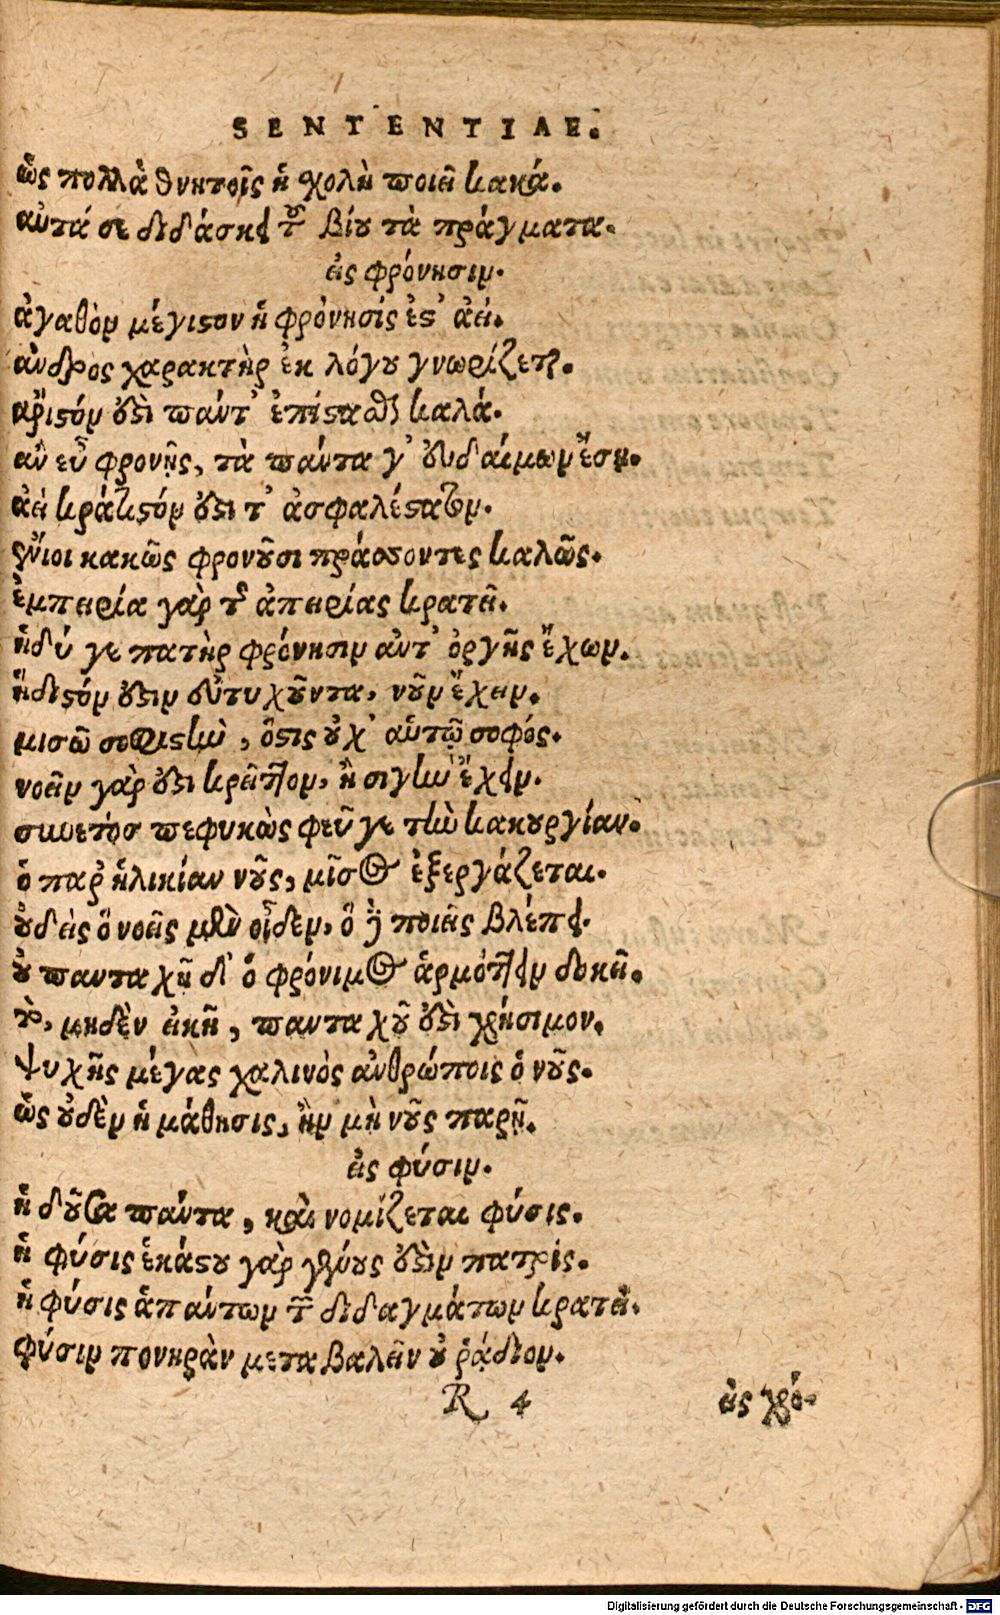 SENTENTIAE.
ὡς πολλὰ θνητοῖς ἡ χολὴ ποιεῖ κακά.
αὐτά σε διδάσκει τοῦ βίου τὰ πράγματα.
εἰς φρόνησιν.
ἀγαθὸν μέγιστον ἡ φρόνησίς ἐστ' ἀεί.
ἀνδρὸς χαρακτὴρ ἐκ λόγου γνωρίζεται.
ἄριστόν ἐστι πάντ' ἐπίστασθαι καλά.
ἂν εὖ φρονῇς, τὰ πάντα γ' εὐδαίμων ἔσῃ.
ἀεὶ κράτιστόν ἐστι τ' ἀσφαλέστατον.
ἔνιοι κακῶς φρονοῦσι πράσσοντες καλῶς.
ἐμπειρία γὰρ τῆς ἀπειρίας κρατεῖ.
ἡδύ γε πατὴρ φρόνησιν ἀντ' ὀργῆς ἔχων.
ἥδιστόν ἐστιν εὐτυχοῦντα, νοῦν ἔχειν.
μισῶ σοφιστὴν, ὅστις οὐχ' αὑτῷ σοφός.
νοεῖν γάρ ἐστι κρεῖττον, ἢ σιγὴν ἔχειν.
συνετὸς πεφυκὼς φεῦγε τὴν κακουργίαν.
ὁ παρ' ἡλικίαν νοῦς, μῖσος ἐξεργάζεται.
οὐδεὶς ὃ νοεῖς μὲν οἶδεν, ὃ δὲ ποιεῖς βλέπει.
οὐ πανταχῆ δ' ὁ φρόνιμος ἁρμόττειν δοκεῖ.
τὸ, μηδὲν εἰκῆ, πανταχοῦ ἐστι χρήσιμον.
ψυχῆς μέγας χαλινὸς ἀνθρώποις ὁ νοῦς.
ὡς οὐδὲν ἡ μάθησις, ἢν μὴ νοῦς παρῇ.
εἰς φύσιν.
ἡ δοῦσα πάντα, καὶ νομίζεται φύσις.
ἡ φύσις ἑκάστου γὰρ γένους ἐστὶν πατρίς.
ἡ φύσις ἁπάντων τῶν διδαγμάτων κρατεῖ.
φύσιν πονηρὰν μεταβαλεῖν οὐ ῥᾴδιον.
R 4 εἰς χρό-
Digitalisierung gefördert durch die Deutsche Forschungsgemeinschaft - DFG